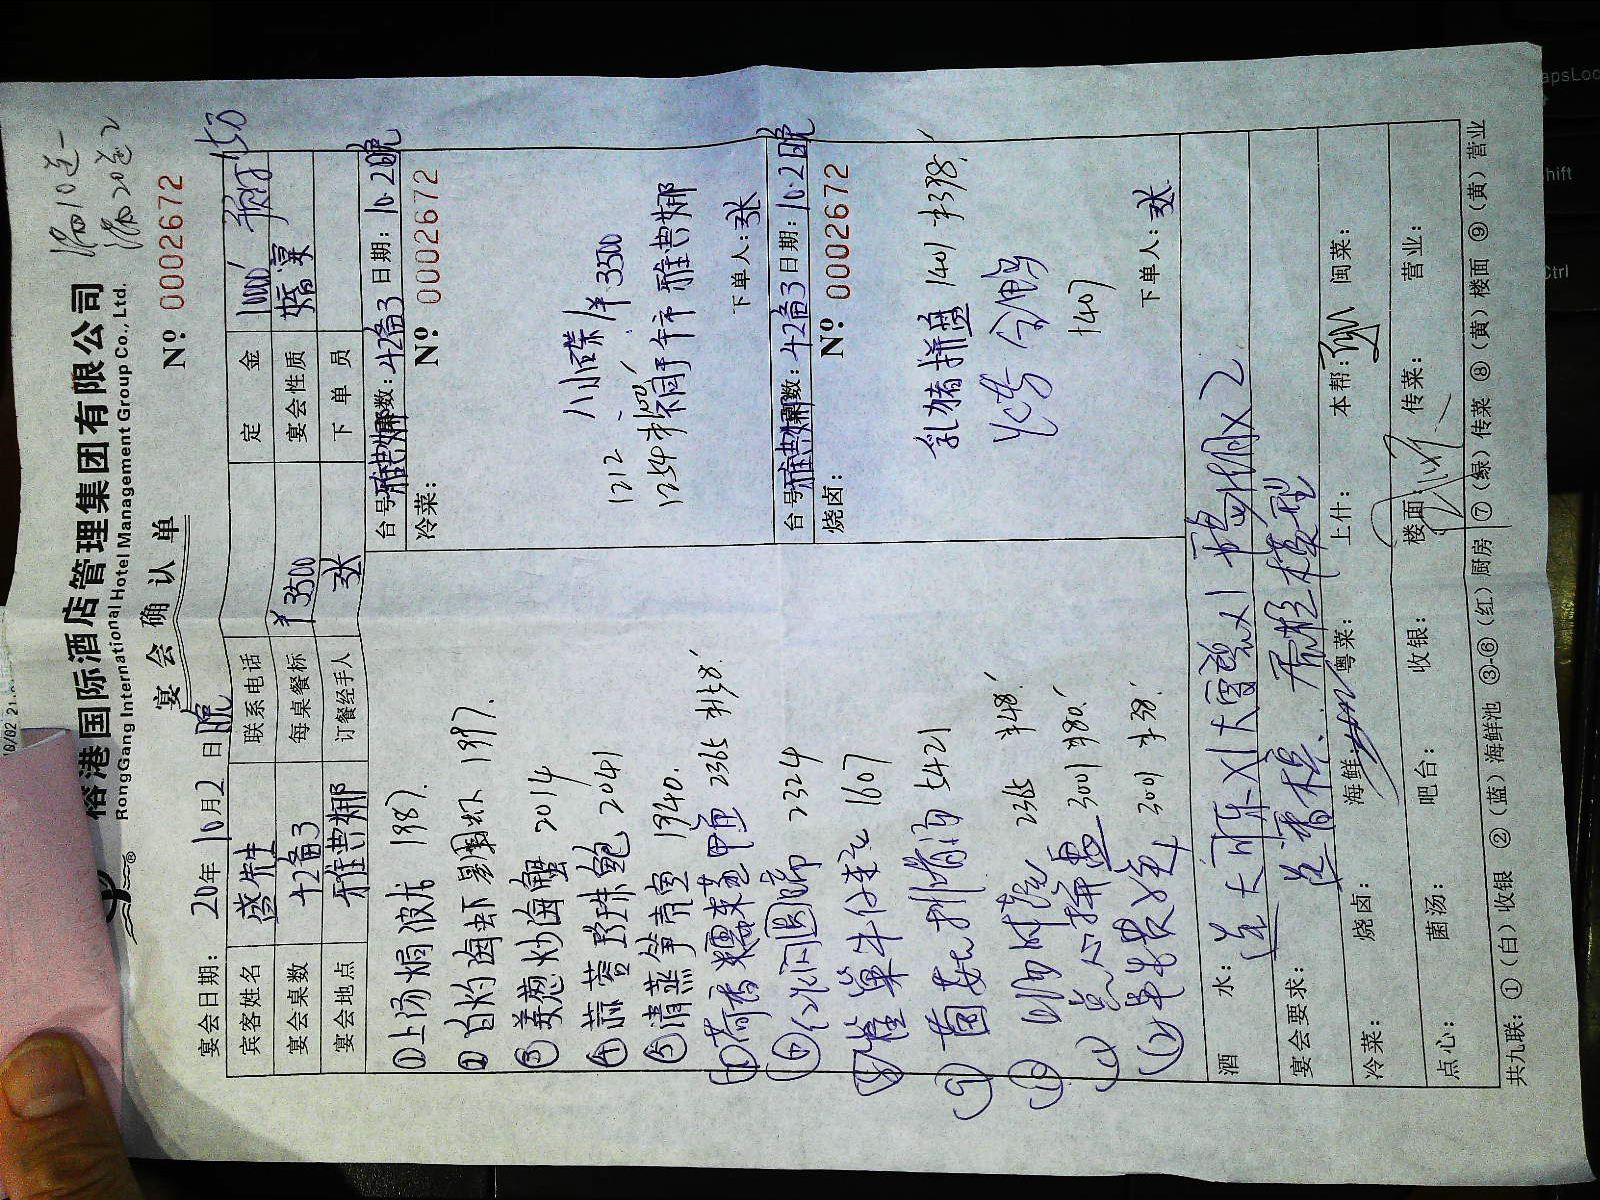 榕港国际酒店管理集团有限公司
RongGang International Hotel Management Group Co., Ltd.
宴会确认单
满10送一
满20送2
宴会日期： 20 年 10 月 2 日 晚
Nº 0002672
宾客姓名 盛先生 联系电话 定金 1000
宴会桌数 42备3 每桌餐标 ¥3500 宴会性质 婚宴
宴会地点 雅典娜 订餐经手人 张 下单员
①上汤焗波龙 1987.
②白灼海虾 1997.
③姜葱炒海蟹 2014
④蒜蓉野珠鲍 2041
⑤清蒸笋壳鱼 1940.
荷香糯米蒸甲鱼 2365 ¥158
红火闷圆蹄 2324
1607
⑨ 5421
⑩ 时蔬 2365 ¥48
点心拼盘 3001 ¥80
3001 ¥38
台号 雅典娜 数：42备3 日期：10.2晚
冷菜：
Nº 0002672
八小碟 ¥3500
1212
1254 ¥100
同于午市 雅典娜
下单人：张
台号 雅典娜 数：42备3 日期：10.2晚
烧卤：
Nº 0002672
乳猪拼盘 1401 ¥398
1407
下单人：张
酒水： 送大可乐X1 大雪碧X1
宴会要求：
冷菜： 烧卤： 海鲜 粤菜： 上什： 本帮： 闽菜：
点心： 菌汤： 吧台： 收银： 楼面： 传菜： 营业：
共九联：①（白）收银 ②（蓝）海鲜池 ③-⑥（红）厨房 ⑦（绿）传菜 ⑧（黄）楼面 ⑨（黄）营业
apsLoc
hift
Ctrl